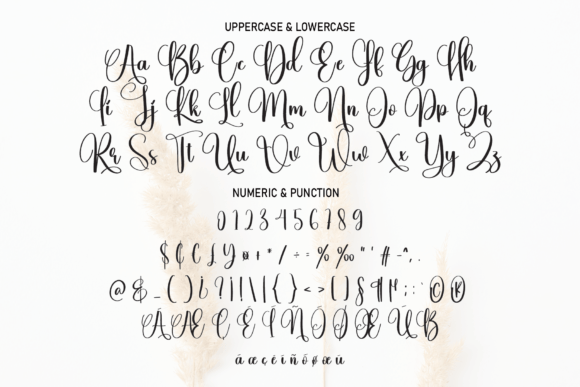 UPPERCASE & LOWERCASE
Aa Bb Cc Dd Ee Ff Gg Hh
Ii Jj Kk Ll Mm Nn Oo Pp Qq
Rr Ss Tt Uu Vv Ww Xx Yy Zz
NUMERIC & PUNCTION
0 1 2 3 4 5 6 7 8 9
$ ¢ € £ ¥ ¤ + * / ÷ = % ‰ " ' # - ^ , .
@ & _ ( ) ¿ ? ¡ ! \ | { } < > [ ] § ¶ ; : © ®
Ä Æ Ç É Í Ñ Ö Ø Œ Ú ß
â æ ç é í ñ ó ø œ ü